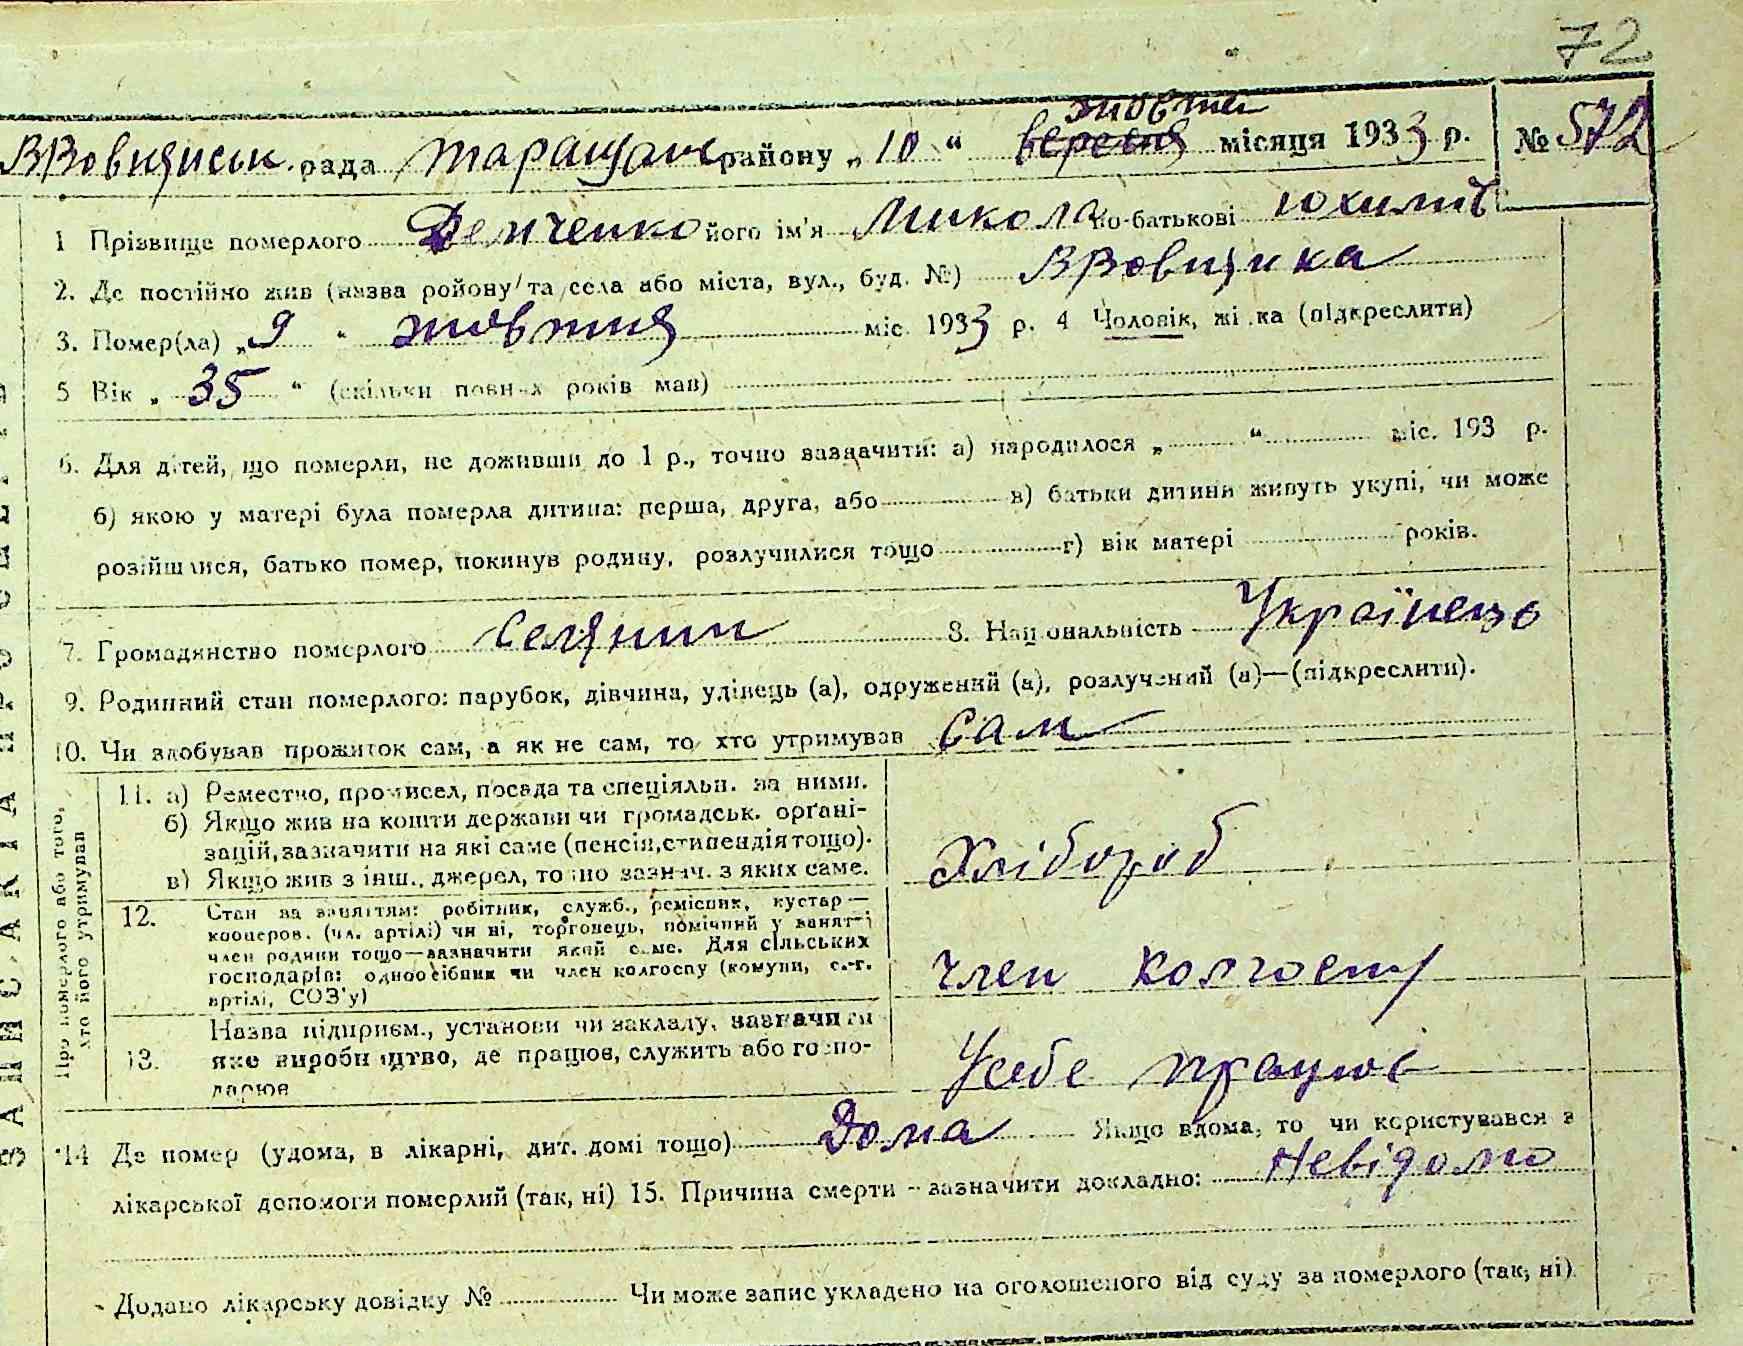 72
ВВовнянськ. рада Таращанс району „10“ вересня жовтня місяця 1933 р. № 572
1 Прізвище померлого Демченко його ім'я Микола по-батькові Юхимів
2. Де постійно жив (назва ройону та села або міста, вул., буд. №) ВВовнянка
3. Помер(ла) „9“ жовтня міс. 1933 р. 4 Чоловік, жі ка (підкреслити)
5 Вік „35“ (скільки повних років мав)
6. Для дітей, що померли, не доживши до 1 р., точно зазначити: а) народилося „ “ міс. 193 р.
б) якою у матері була померла дитина: перша, друга, або в) батьки дитини живуть укупі, чи може
розійшлися, батько помер, покинув родину, розлучилися тощо г) вік матері років.
7. Громадянство померлого Селянин 8. Національність Українець
9. Родинний стан померлого: парубок, дівчина, удівець (а), одружений (а), розлучений (а)—(підкреслити).
10. Чи здобував прожиток сам, а як не сам, то хто утримував Сам
Про померлого або того, хто його утримував
11. а) Ремество, промисел, посада та спеціяльн. за ними.
б) Якщо жив на кошти держави чи громадськ. органі-
зацій, зазначити на які саме (пенсія, стипендія тощо).
в) Якщо жив з інш., джерел, точно зазнач. з яких саме.
Хлібороб
12. Стан за заняттям: робітник, служб., ремісник, кустар—
кооперов. (чл. артілі) чи ні, торговець, помічний у занятті
член родини тощо—зазначити який саме. Для сільських
господарів: одноосібник чи член колгоспу (комуни, с.-г.
артілі, СОЗ'у)
член колгоспу
13. Назва підприєм., установи чи закладу, зазначити
яке виробництво, де працює, служить або госпо-
дарює
У себе працює
14 Де помер (удома, в лікарні, дит. домі тощо) Дома Якщо вдома, то чи користувався з
лікарської допомоги померлий (так, ні) 15. Причина смерти - зазначити докладно: Невідомо
Додано лікарську довідку № Чи може запис укладено на оголошеного від суду за померлого (так, ні).